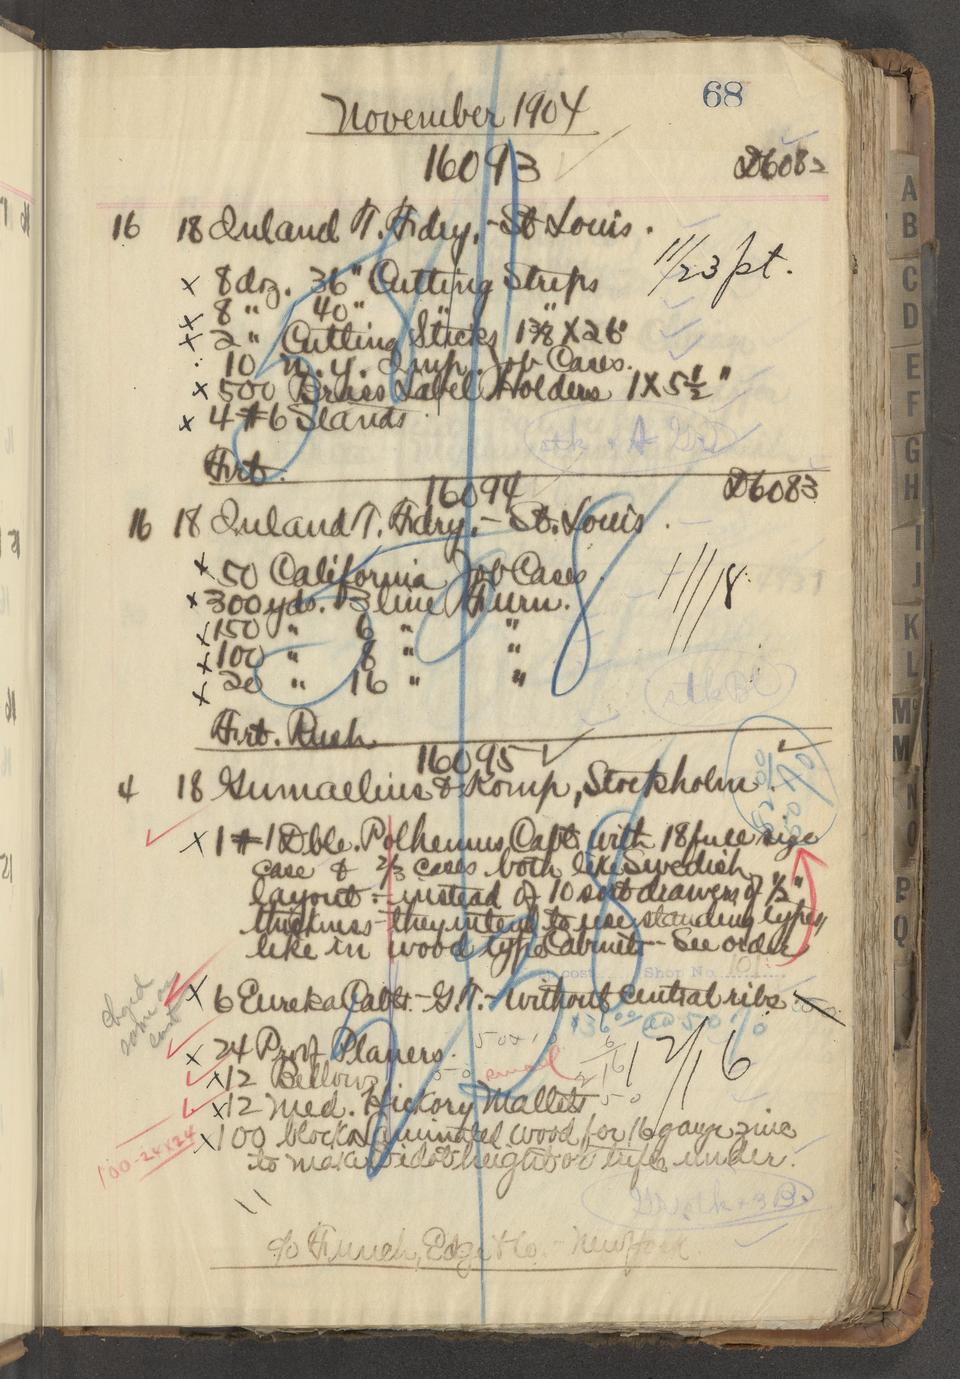 68
November 1904
16093
D6082
16 18 Inland T. Fdry. - St Louis.
11/23 pt.
x 8 doz. 36" Cutting Strips
x 8 " 40" " "
x 2 " Cutting Sticks 1 3/8 X 26"
10 N.Y. Imp. Job Cases.
x 500 Brass Label Holders 1 X 5 1/2"
x 4 #6 Stands
stk + A
Frt.
16094
D6083
16 18 Inland T. Fdry. - St. Louis.
11/18
x 50 California Job Cases
x 300 yds. 3 line Furn.
x 150 " 6 " "
x 100 " 8 " "
x 20 " 16 " "
stk Bl
Frt. Rush.
16095
4 18 Gumaelius & Komp, Stockholm.
x 1 #1 Dble. Polhemus Cabt with 18 full size
case & 2/3 cases both like Swedish
layout - instead of 10 sort drawers of 1/2"
thickness they intend to use standing types
like in wood type Cabinet - See order
cost Shop No. 101
x 6 Eureka Cabts. - G.T. - without central ribs
$36.00 @ 50%
x 24 Proof Planers.
12/16
x 12 Bellows
x 12 Med. Hickory Mallets
x 100 blocks laminated wood for 16 gauge zinc
100-24x24
to make wood height of type under.
c/o Funch, Edge & Co. - New York
A
B
C
D
E
F
G
H
I
J
K
L
Mc
M
N
O
P
Q